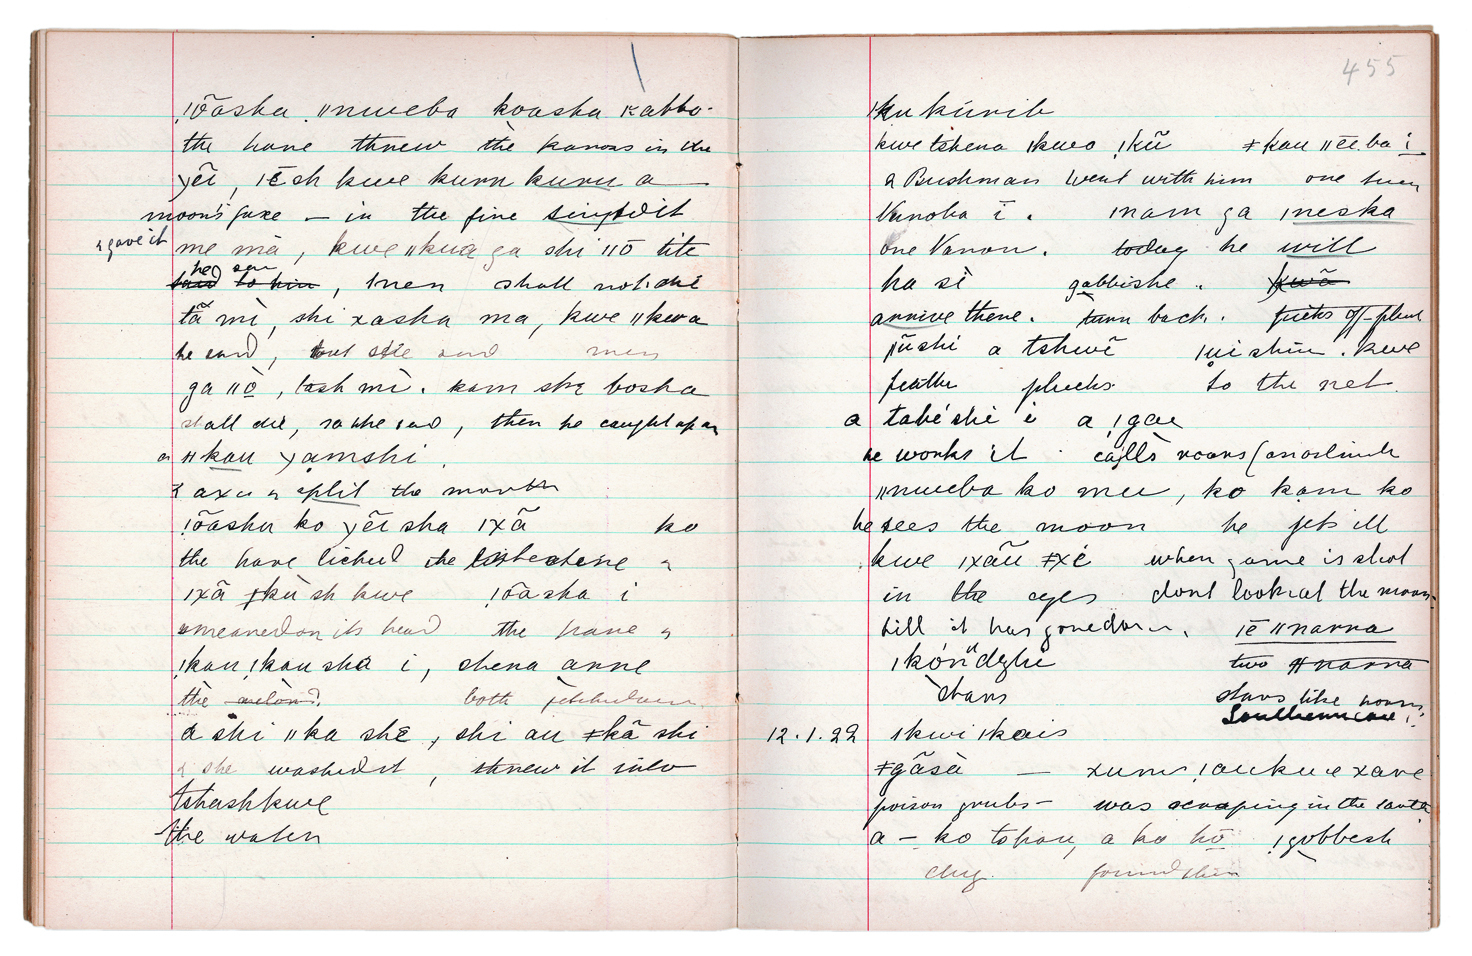 ǃōasha ǁnweba koasha ʞabba.
the hare threw the kaross in the
yēi, ǀēsh kwe kuru kuru a —
moon's face — in the fire singed it
& gave it me mā, kwe ǁkwa ga shi ǁō tite
he said to him, men shall not die
tā mi, shi xasha ma, kwe ǁkwa
he said, but she said men
ga ǁō, tash mi. kam she bosha
shall die, so she said, then he caught up an
a ǁkau yamshi.
& axe & split the mouth
ǃōasha ko yēi sha ǀxā ko
the hare licked the intestine &
ǀxā ǂkù sh kwe ǃōāsha i
smeared on its head the hare &
ǃkau ǃkau sha i, shena anne
the both
a shi ǁka she, shi au ǂkā shi
& she washed it, threw it into
tshashkwe
the water
455
ǀku kúrib
kwe tshena ǀkwo ǃkū ǂkau ǁēē.ba i
a Bushman went with him one
Vanoba ī. ǀnam ga ǀneska
one Vanon. today he will
ha sè gabbishe. kwā
arrive there. turn back. picks off-pluck
ǀūshi a tshwē ǀui shiu. kwe
feather plucks to the net
a tabé shi i a ǃgae
he works it calls roars
ǁnweba ko mu, ko kam ko
he sees the moon he gets ill
kwe ǀxāū ǂxé when game is shot
in the eyes dont look at the moon
till it has gone down. ǀē ǁnarra
ǀkónu dzhi two ǁnarra
stars stars like
Southern
12.1.22 ǀkwi ǀkais
ǂgāsà — xum ǃaukwe xare
poison grubs — was scraping in the earth
a — ko topau, a ko hō ǃgobbesh
dug. found